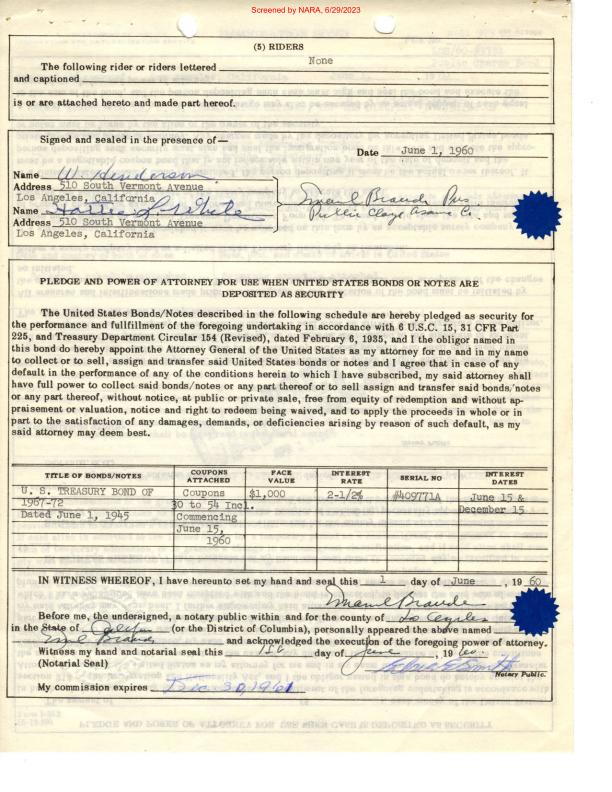 Screened by NARA, 6/29/2023
(5) RIDERS
The following rider or riders lettered None
and captioned
is or are attached hereto and made part hereof.
Signed and sealed in the presence of—
Date June 1, 1960
Name W. Henderson
Address 510 South Vermont Avenue
Los Angeles, California
Name
Address 510 South Vermont Avenue
Los Angeles, California
Emanuel Braude Pres.
Public
PLEDGE AND POWER OF ATTORNEY FOR USE WHEN UNITED STATES BONDS OR NOTES ARE
DEPOSITED AS SECURITY
The United States Bonds/Notes described in the following schedule are hereby pledged as security for
the performance and fullfillment of the foregoing undertaking in accordance with 6 U.S.C. 15, 31 CFR Part
225, and Treasury Department Circular 154 (Revised), dated February 6, 1935, and I the obligor named in
this bond do hereby appoint the Attorney General of the United States as my attorney for me and in my name
to collect or to sell, assign and transfer said United States bonds or notes and I agree that in case of any
default in the performance of any of the conditions herein to which I have subscribed, my said attorney shall
have full power to collect said bonds/notes or any part thereof or to sell assign and transfer said bonds/notes
or any part thereof, without notice, at public or private sale, free from equity of redemption and without ap-
praisement or valuation, notice and right to redeem being waived, and to apply the proceeds in whole or in
part to the satisfaction of any damages, demands, or deficiencies arising by reason of such default, as my
said attorney may deem best.
TITLE OF BONDS/NOTES COUPONS ATTACHED FACE VALUE INTEREST RATE SERIAL NO INTEREST DATES
U. S. TREASURY BOND OF Coupons $1,000 2-1/2% #409771A June 15 &
1967-72 30 to 54 Incl. December 15
Dated June 1, 1945 Commencing
June 15,
1960
IN WITNESS WHEREOF, I have hereunto set my hand and seal this 1 day of June, 19 60
Emanuel Braude
Before me, the undersigned, a notary public within and for the county of Los Angeles
in the State of Calif (or the District of Columbia), personally appeared the above named
Emanuel Braude and acknowledged the execution of the foregoing power of attorney.
Witness my hand and notarial seal this 1st day of June, 19 60.
(Notarial Seal)
Notary Public.
My commission expires Dec 30, 1961